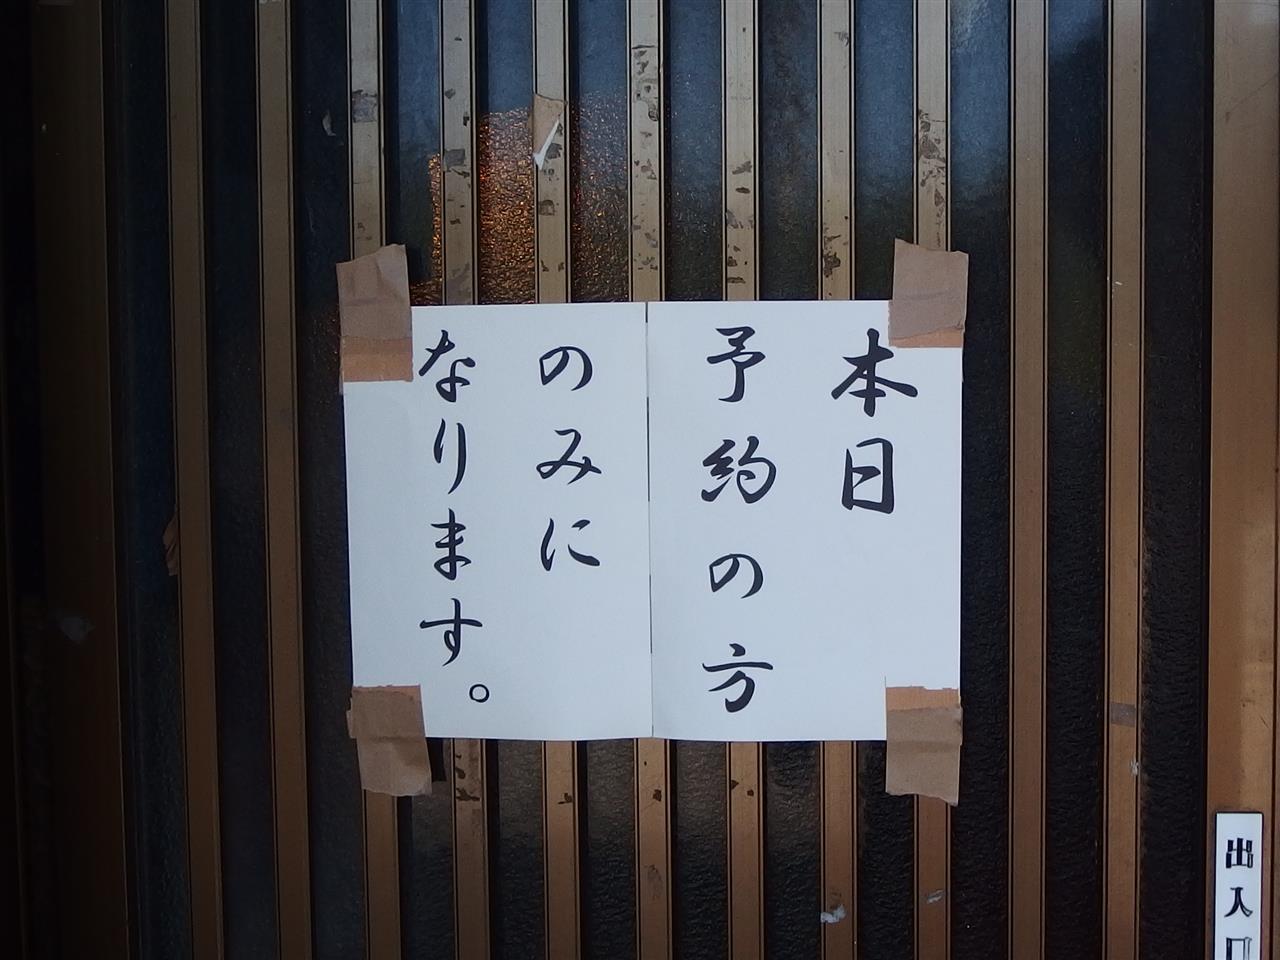 本日
予約の方
のみに
なります。
出入口